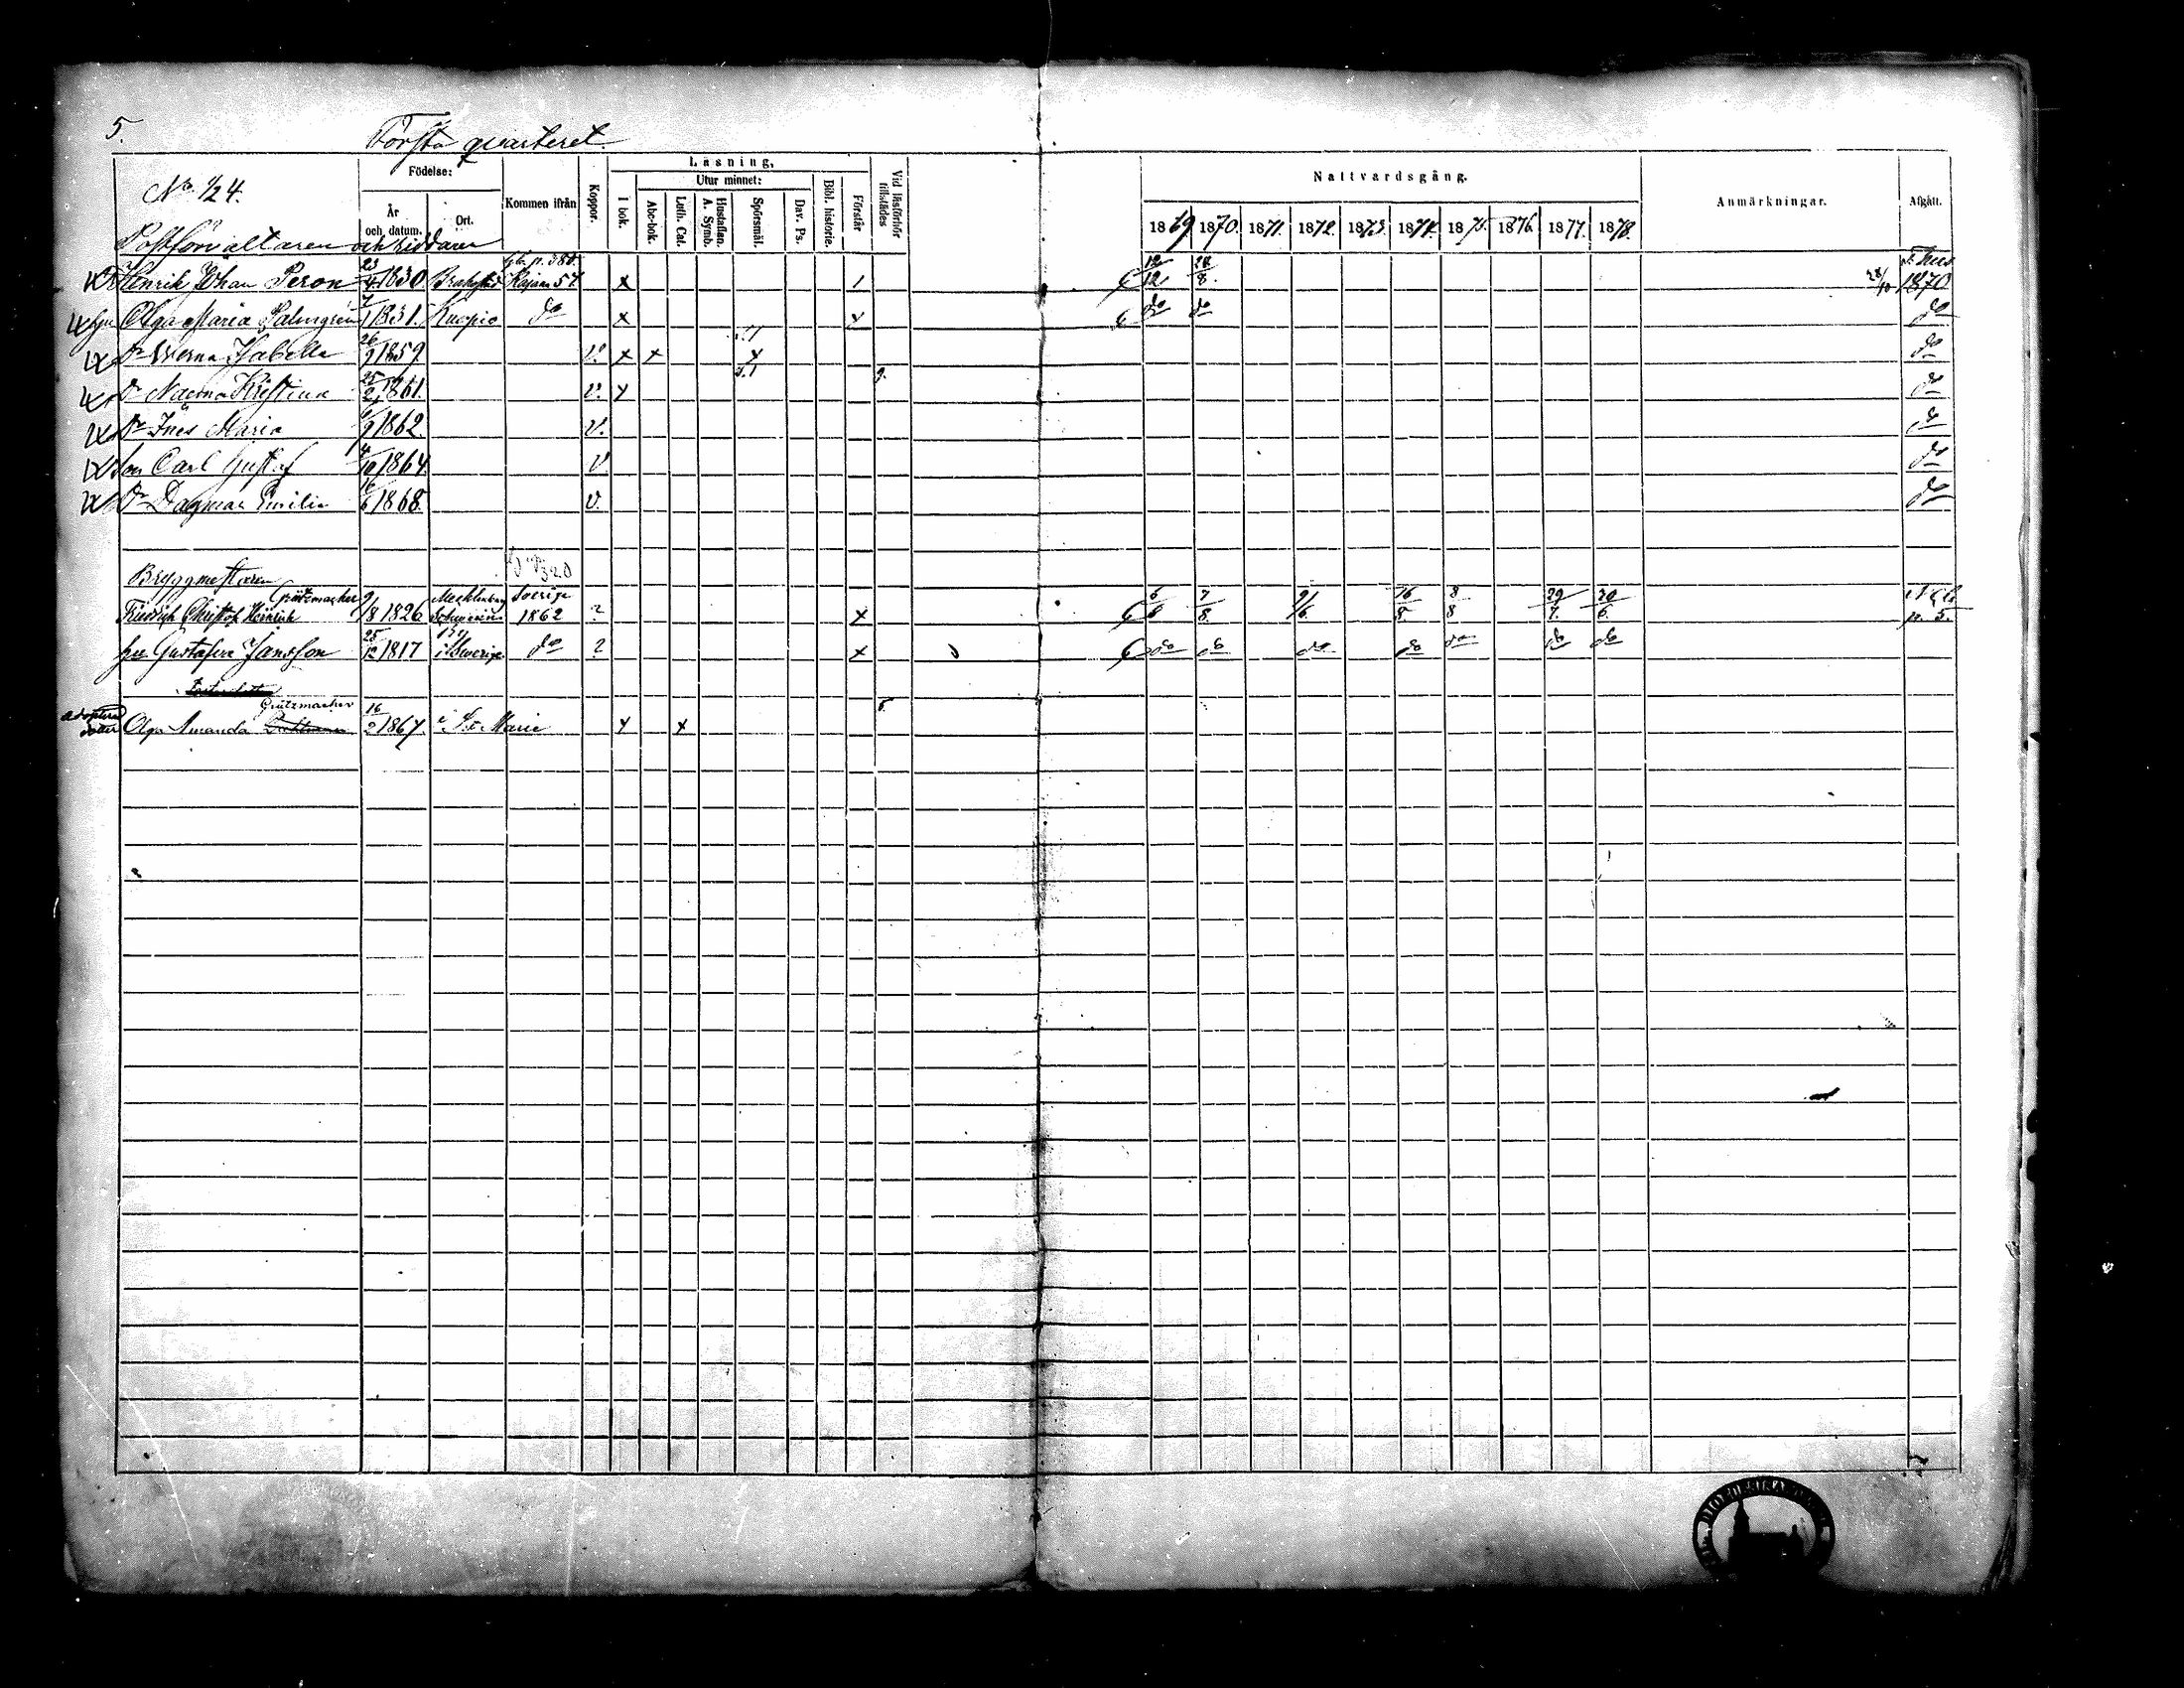 5.
Första quarteret.
No 1/24.
Födelse:
År och datum.
Ort.
Kommen ifrån
Koppor.
Läsning,
I bok.
Utur minnet:
Abc-bok.
Luth. Cat.
Hustaflan. A. Symb.
Spörsmål.
Dav. Ps.
Bibl. historie.
Förstår
Vid läsförhör tillstädes
Nattvardsgång.
1869 1870. 1871. 1872. 1873. 1874. 1875. 1876. 1877. 1878.
Anmärkningar.
Afgått.
Postförvaltaren och riddaren
Henrik Johan Peron 23/4 1830 Brahestad p. 380. Kajana 57. x 1 12/12 28/8. 28/10 1870
Olga Maria Palmgren 7/1 1831. Kuopio do x x do do do
Dr Werna Isabella 26/9 1859. v. x x x do
Dr Naema Kristina 25/2 1861. v. x 9. do
Dr Ines Maria 6/9 1862. v. do
Son Carl Gustaf 4/10 1864. v do
Dr Dagmar Emilia 16/6 1868. v. do
Bryggmästaren
Grützmacher
Friedrich Christof Heinrich 9/8 1826. Mecklenburg Schwerin Sverige 1862 ? x 6/6 7/8. 9/6. 16/8 8/8 29/7. 30/6. p. 5.
Gustafva Jansson 25/12 1817 i Sverige do ? x do do do do do do do
Grützmacher
adopterad dotter Olga Amanda 16/2 1867. i St Marie x x 5.